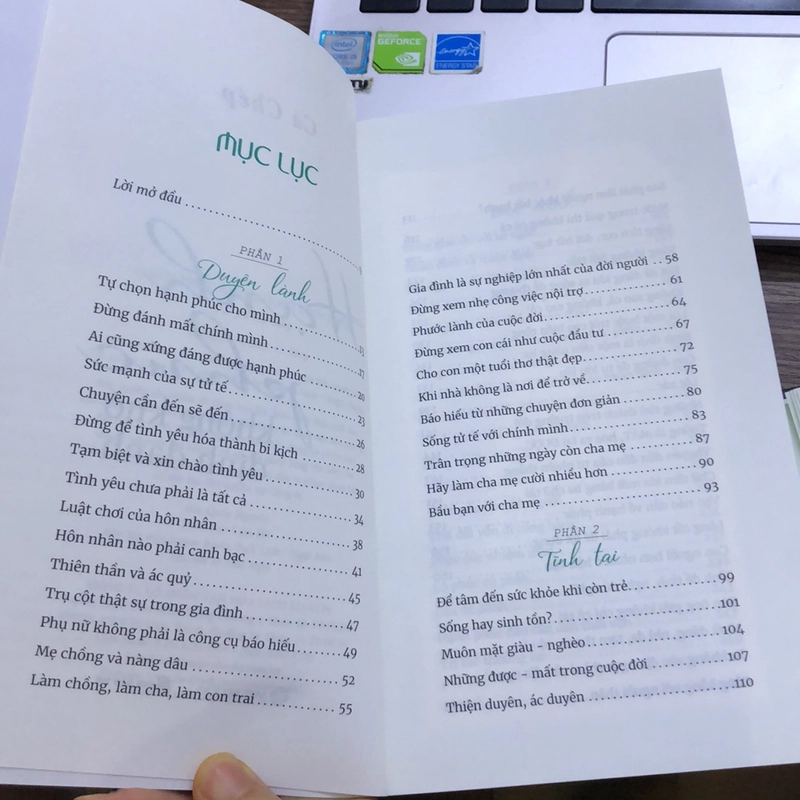 MỤC LỤC
Lời mở đầu
PHẦN 1
Duyên lành
Tự chọn hạnh phúc cho mình
Đừng đánh mất chính mình 13
Ai cũng xứng đáng được hạnh phúc 17
Sức mạnh của sự tử tế 20
Chuyện cần đến sẽ đến 23
Đừng để tình yêu hóa thành bi kịch 26
Tạm biệt và xin chào tình yêu 28
Tình yêu chưa phải là tất cả 30
Luật chơi của hôn nhân 34
Hôn nhân nào phải canh bạc 38
Thiên thần và ác quỷ 41
Trụ cột thật sự trong gia đình 45
Phụ nữ không phải là công cụ báo hiếu 47
Mẹ chồng và nàng dâu 49
Làm chồng, làm cha, làm con trai 52
55
Gia đình là sự nghiệp lớn nhất của đời người .. 58
Đừng xem nhẹ công việc nội trợ 61
Phước lành của cuộc đời 64
Đừng xem con cái như cuộc đầu tư 67
Cho con một tuổi thơ thật đẹp 72
Khi nhà không là nơi để trở về 75
Báo hiếu từ những chuyện đơn giản 80
Sống tử tế với chính mình 83
Trân trọng những ngày còn cha mẹ 87
Hãy làm cha mẹ cười nhiều hơn 90
Bầu bạn với cha mẹ 93
PHẦN 2
Tĩnh tại
Để tâm đến sức khỏe khi còn trẻ 99
Sống hay sinh tồn? 101
Muôn mặt giàu - nghèo 104
Những được - mất trong cuộc đời 107
Thiện duyên, ác duyên 110
intel
GEFORCE
ENERGY STAR